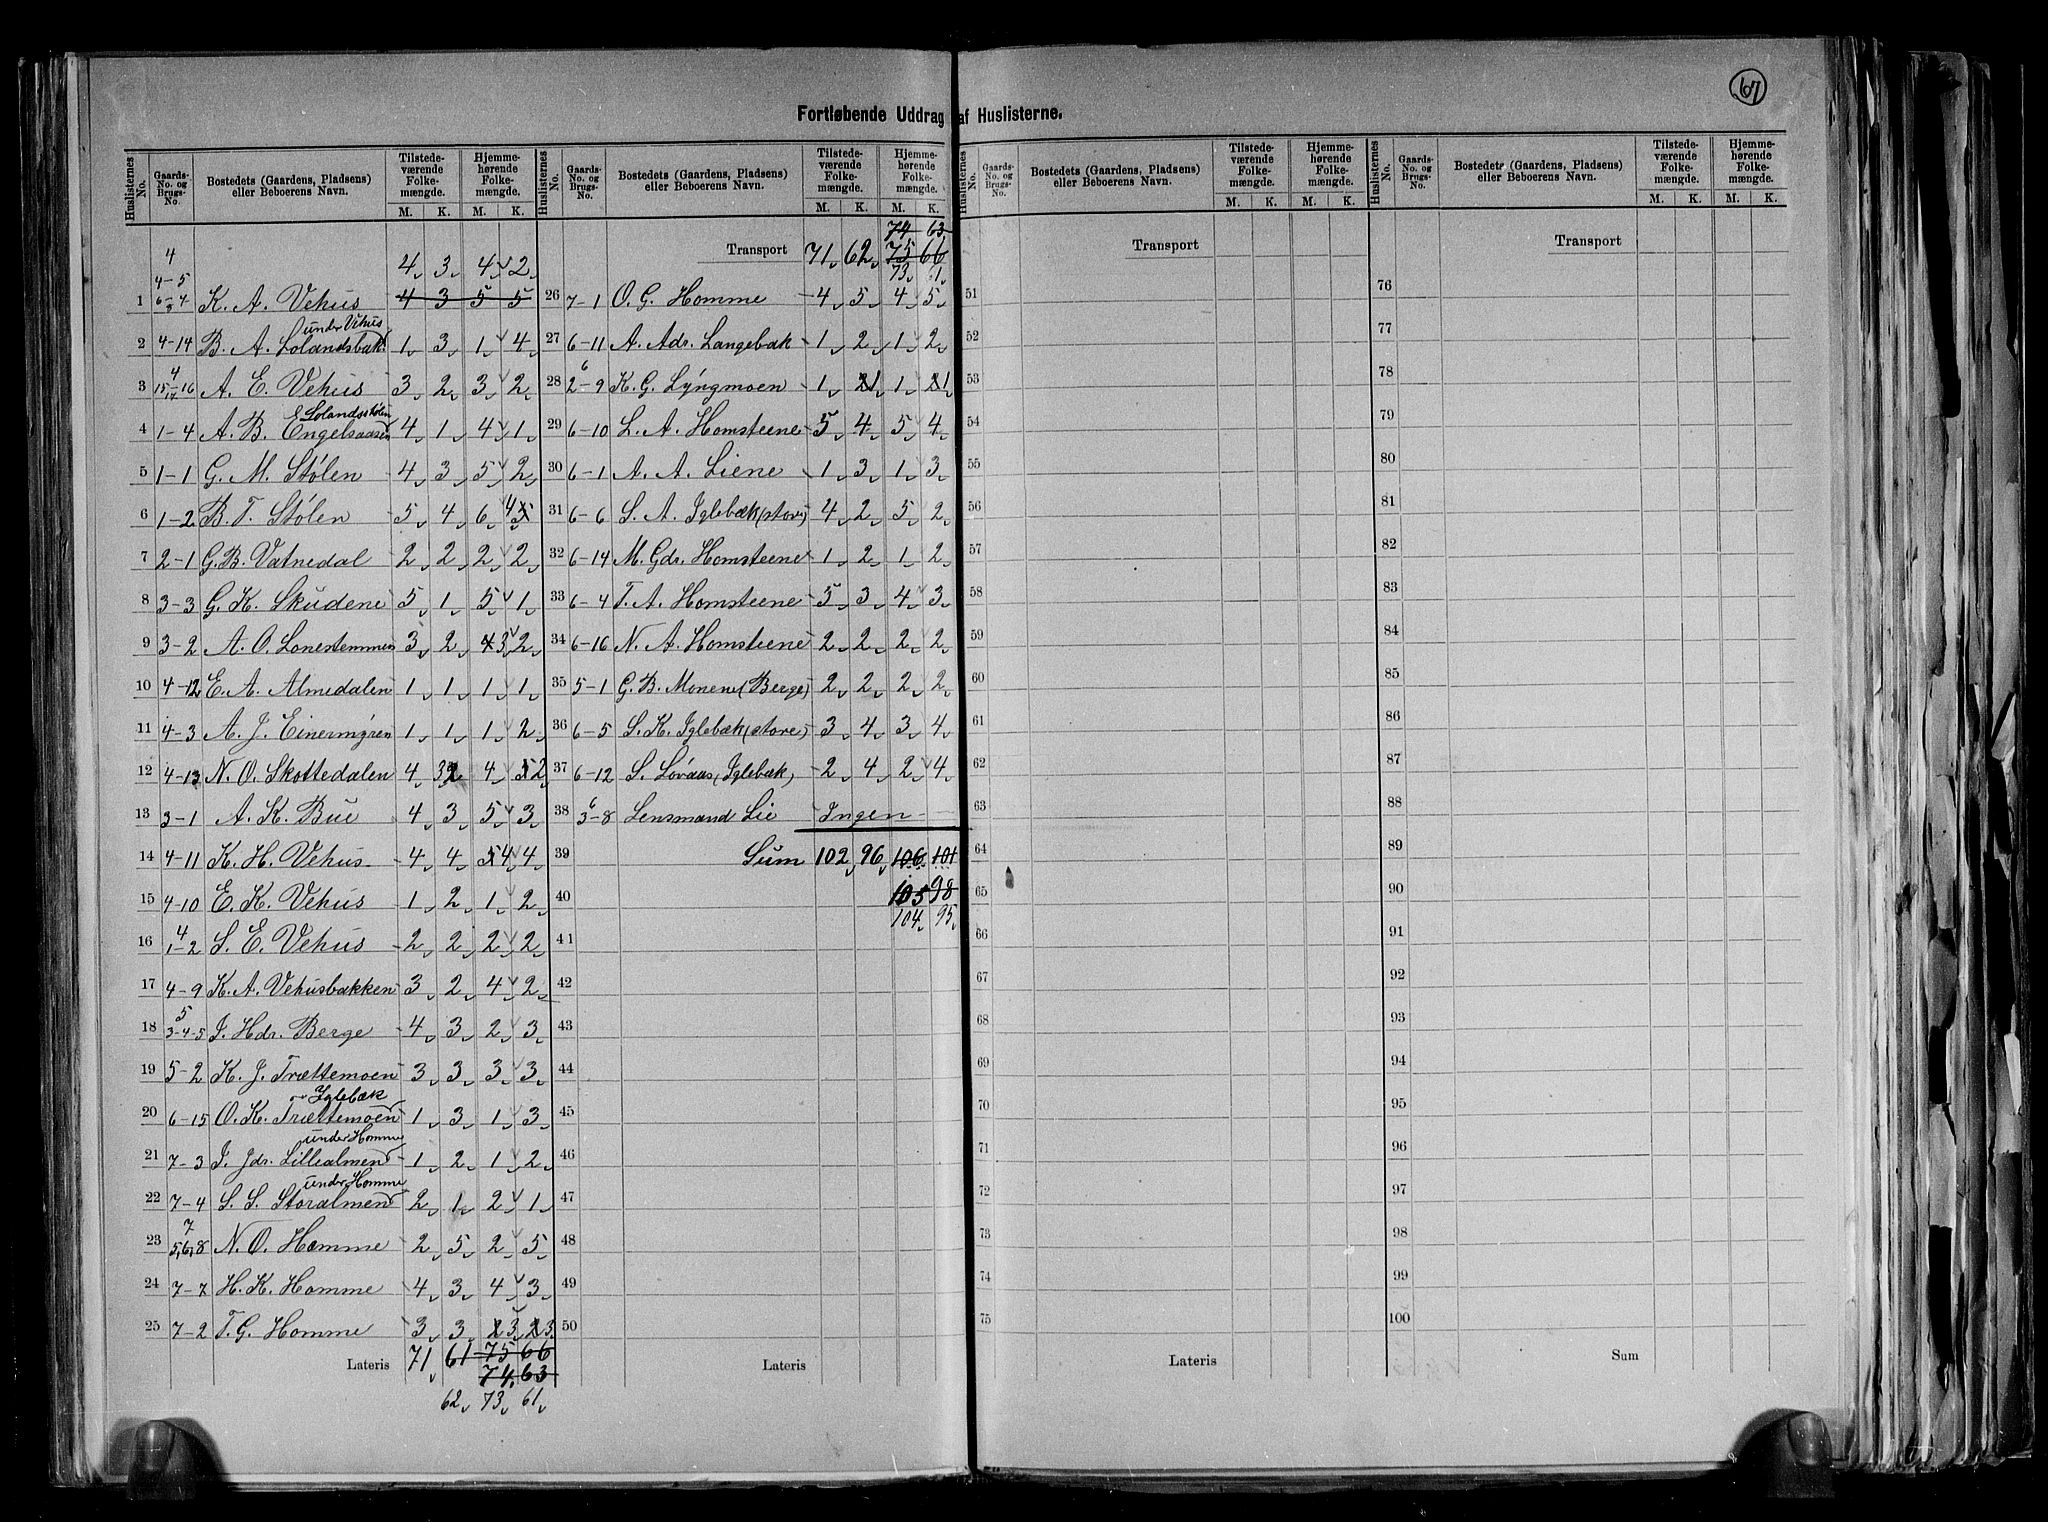 67
Fortløbende Uddrag af Huslisterne.
Huslisternes No. | Gaards-No. og Brugs-No. | Bostedets (Gaardens, Pladsens) eller Beboerens Navn. | Tilstedeværende Folkemængde. M. K. | Hjemmehørende Folkemængde. M. K.
4 3 4 2
1 | 4 4-5 6-4 8 | K. A. Vehus | 4 3 5 5
2 | 4-14 | B. A. Lolandsbak under Vehus | 1 3 1 4
3 | 4 15-16 17 | A. E. Vehus | 3 2 3 2
4 | 1-4 | A. B. Engelsaasen Lolandsstølen | 4 1 4 1
5 | 1-1 | G. M. Stølen | 4 3 5 2
6 | 1-2 | B. T. Stølen | 5 4 6 4 5
7 | 2-1 | G. B. Vatnedal | 2 2 2 2
8 | 3-3 | G. K. Skudene | 5 1 5 1
9 | 3-2 | A. O. Lonestemmen | 3 2 4 3 2
10 | 4-12 | E. A. Almedalen | 1 1 1 1
11 | 4-3 | A. J. Einermyren | 1 1 1 2
12 | 4-13 | N. O. Skottedalen | 4 3 2 4 3 2
13 | 3-1 | A. K. Bue | 4 3 5 3
14 | 4-11 | K. H. Vehus | 4 4 5 4 4
15 | 4-10 | E. K. Vehus | 1 2 1 2
16 | 4 1-2 | S. E. Vehus | 2 2 2 2
17 | 4-9 | K. A. Vehusbakken | 3 2 4 2
18 | 5 3-4-5 | J. Hdr. Berge | 4 3 2 3
19 | 5-2 | K. J. Trættemoen | 3 3 3 3
20 | 6-15 | O. K. Trættemoen Iglebæk | 1 3 1 3
21 | 7-3 | J. Jdr. Lillealmen under Homme | 1 2 1 2
22 | 7-4 | S. S. Storalmen under Homme | 2 1 2 1
23 | 7 5,6,8 | N. O. Homme | 2 5 2 5
24 | 7-7 | H. K. Homme | 4 3 4 3
25 | 7-2 | T. G. Homme | 3 3 2 3 2 3
Lateris 71 61 75 66
74 63
62 73 61
Huslisternes No. | Gaards-No. og Brugs-No. | Bostedets (Gaardens, Pladsens) eller Beboerens Navn. | Tilstedeværende Folkemængde. M. K. | Hjemmehørende Folkemængde. M. K.
74 63
Transport 71 62 75 66
73 61
26 | 7-1 | O. G. Homme | 4 5 4 5
27 | 6-11 | A. Adr. Langebak | 1 2 1 2
28 | 6 2-9 | K. G. Lyngmoen | 1 2 1 1 2 1
29 | 6-10 | L. A. Homsteene | 5 4 5 4
30 | 6-1 | A. A. Liene | 1 3 1 3
31 | 6-6 | S. A. Iglebæk (store) | 4 2 5 2
32 | 6-14 | M. Gdr. Homsteene | 1 2 1 2
33 | 6-4 | T. A. Homsteene | 5 3 4 3
34 | 6-16 | N. A. Homsteene | 2 2 2 2
35 | 5-1 | G. B. Monen (Berge) | 2 2 2 2
36 | 6-5 | S. K. Iglebæk (store) | 3 4 3 4
37 | 6-12 | S. Lovaas (Iglebæk) | 2 4 2 4
38 | 6 3-8 | Lensmand Lie | Ingen
39 Sum 102 96 106 101
40 105 98
104 95
41
42
43
44
45
46
47
48
49
50
Lateris
Huslisternes No. | Gaards-No. og Brugs-No. | Bostedets (Gaardens, Pladsens) eller Beboerens Navn. | Tilstedeværende Folkemængde. M. K. | Hjemmehørende Folkemængde. M. K.
Transport
51
52
53
54
55
56
57
58
59
60
61
62
63
64
65
66
67
68
69
70
71
72
73
74
75
Lateris
Huslisternes No. | Gaards-No. og Brugs-No. | Bostedets (Gaardens, Pladsens) eller Beboerens Navn. | Tilstedeværende Folkemængde. M. K. | Hjemmehørende Folkemængde. M. K.
Transport
76
77
78
79
80
81
82
83
84
85
86
87
88
89
90
91
92
93
94
95
96
97
98
99
100
Sum